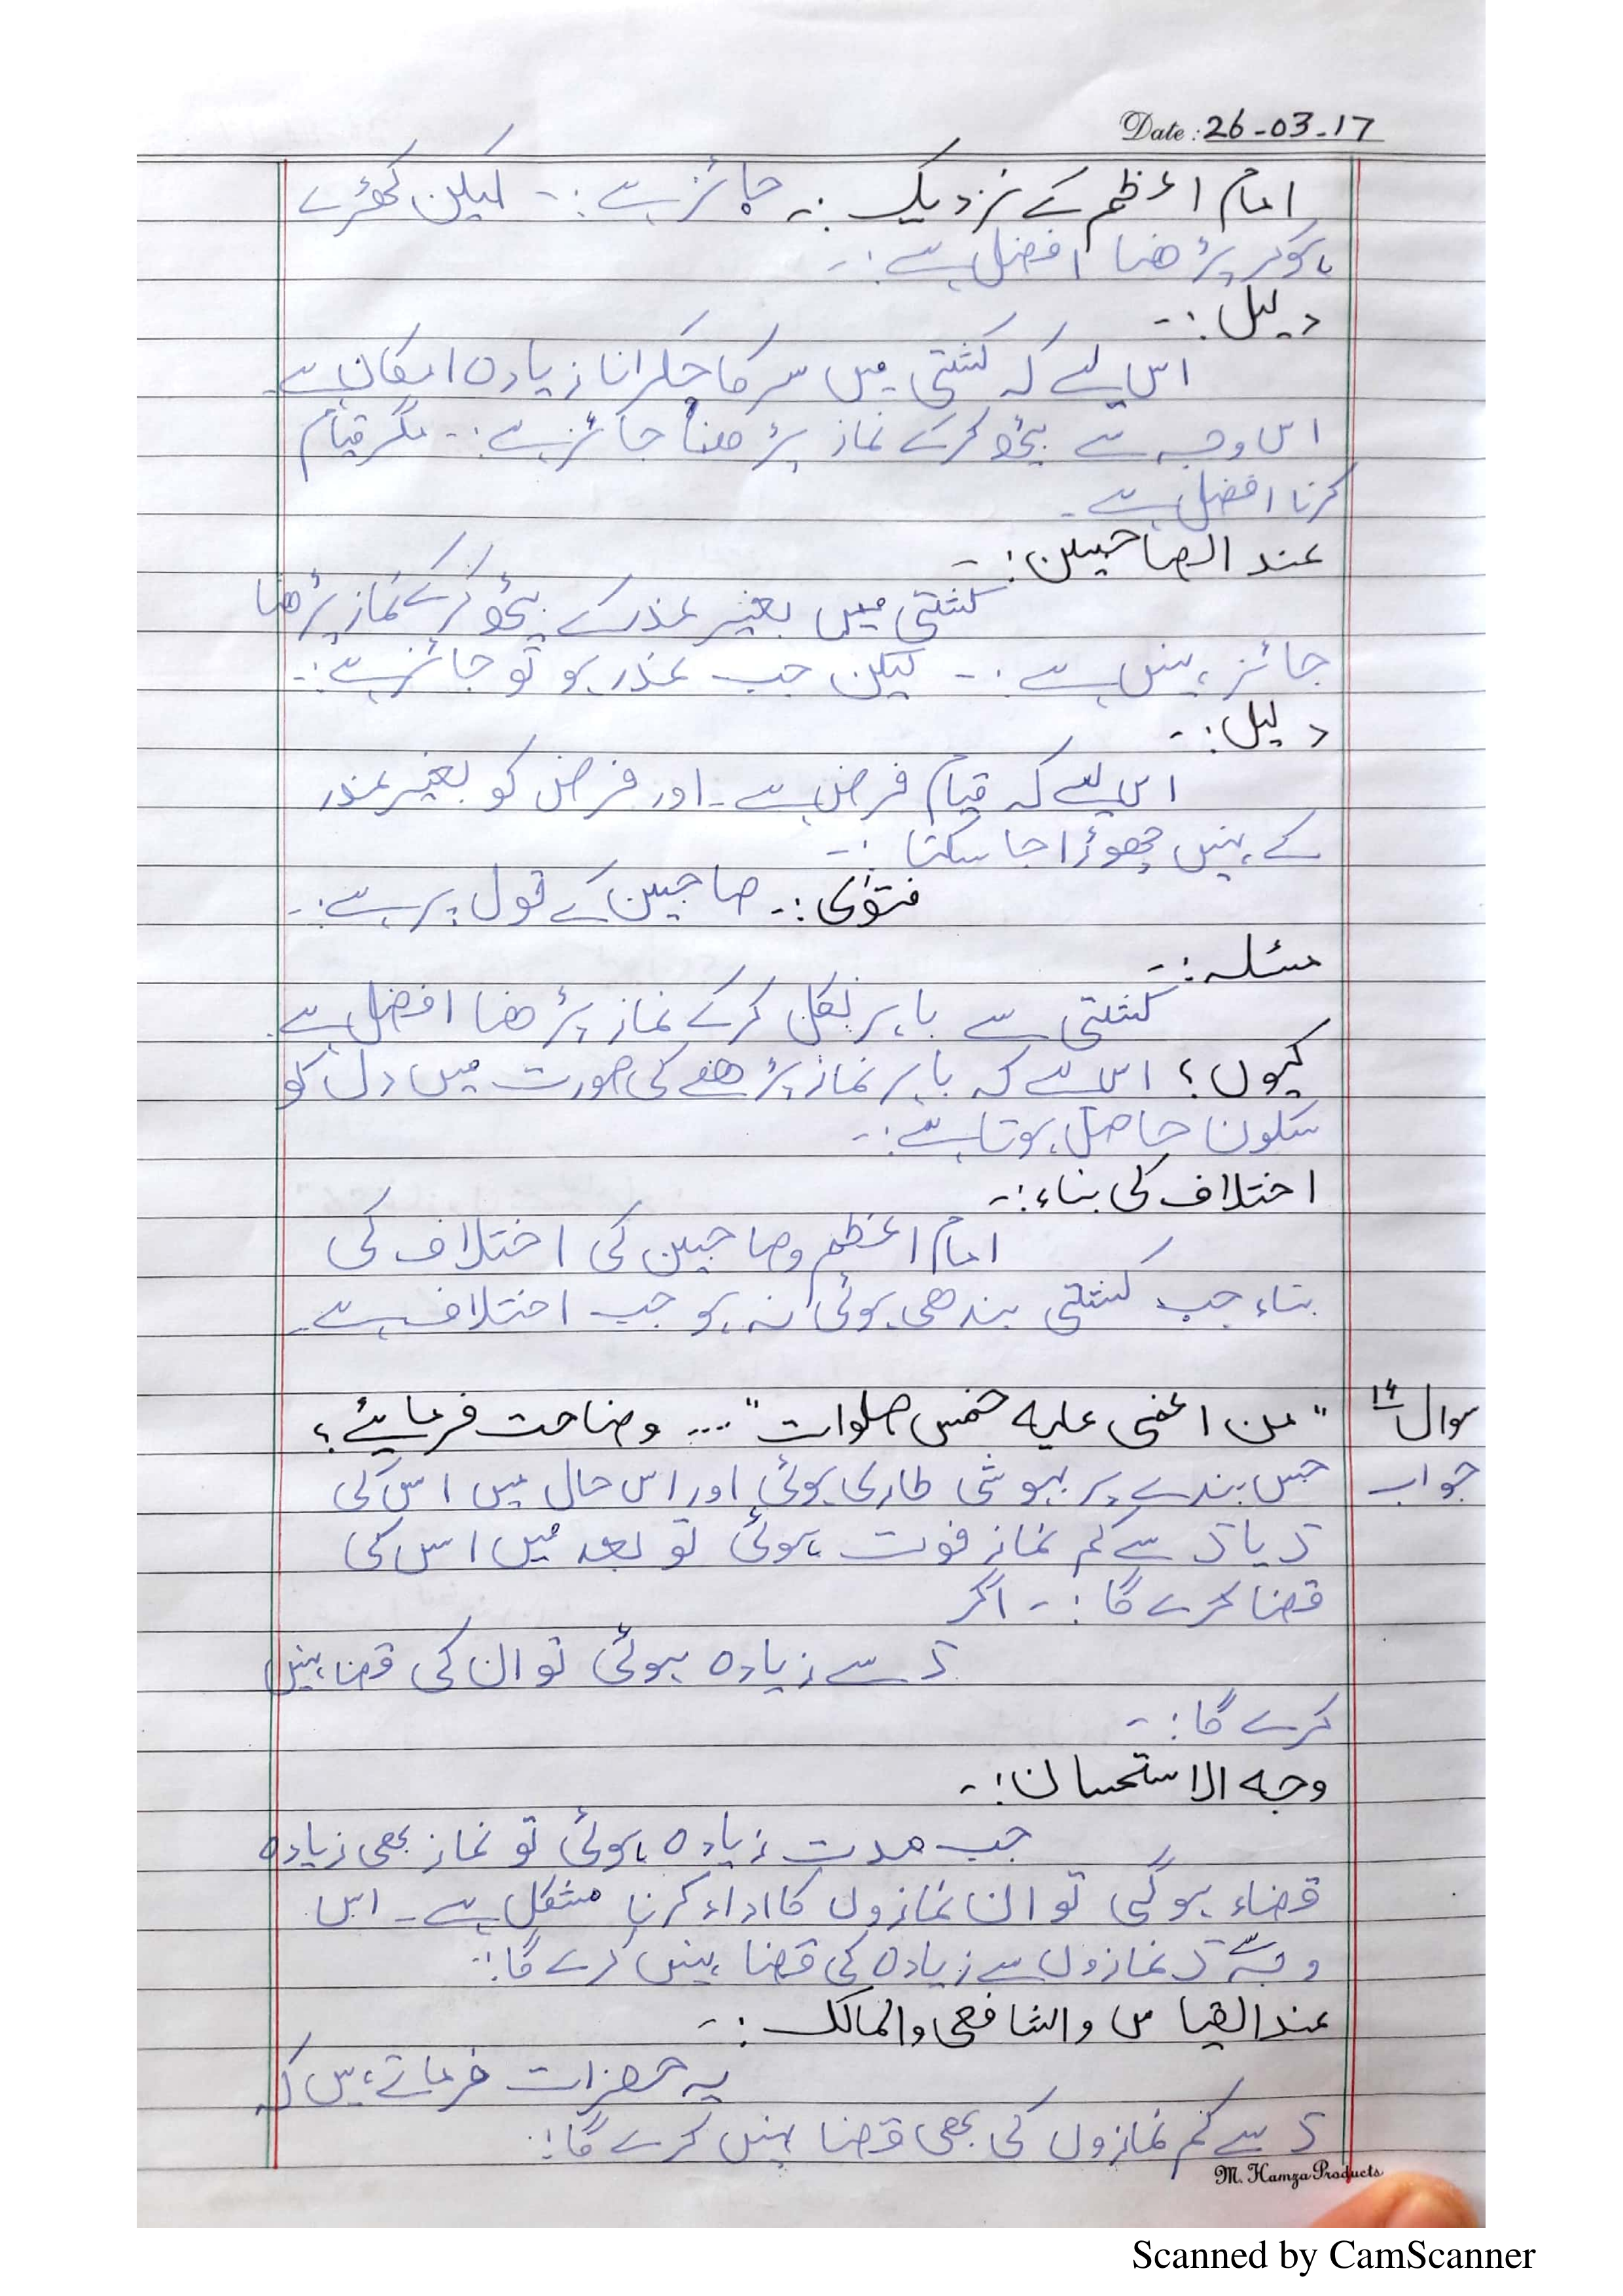 Date : 26-03-17
امام اعظم کے نزدیک :۔ جائز ہے :۔ لیکن کھڑے
ہوکر پڑھنا افضل ہے :۔
دلیل :۔
اس لیے کہ کشتی میں سر کا چکرانا زیادہ امکان ہے
اس وجہ سے بیٹھ کرکے نماز پڑھنا جائز ہے :۔ مگر قیام
کرنا افضل ہے ۔
عند الصاحبین :۔
کشتی میں بغیر عذر کے بیٹھ کرکے نماز پڑھنا
جائز نہیں ہے :۔ لیکن جب عذر ہو تو جائز ہے :۔
دلیل :۔
اس لیے کہ قیام فرض ہے ۔ اور فرض کو بغیر عذر
کے نہیں چھوڑا جا سکتا :۔
فتوٰی :۔ صاحبین کے قول پر ہے :۔
مسئلہ :۔
کشتی سے باہر نکل کرکے نماز پڑھنا افضل ہے ۔
کیوں ؟ اس لیے کہ باہر نماز پڑھنے کی صورت میں دل کو
سکون حاصل ہوتا ہے :۔
اختلاف کی بناء :۔
امام اعظم و صاحبین کی اختلاف کی
بناء جب کشتی بندھی ہوئی نہ ہو جب اختلاف ہے ۔
سوال ۱۴ " من اغمی علیہ خمس صلوات " ... وضاحت فرمایئے ؟
جواب جس بندے پر بیہوشی طاری ہوئی اور اس حال میں اس کی
۵ یا ۵ سے کم نماز فوت ہوئی تو بعد میں اس کی
قضا کرے گا :۔ اگر
۵ سے زیادہ ہوئی تو ان کی قضا نہیں
کرے گا :۔
وجہ الاستحسان :۔
جب مدت زیادہ ہوئی تو نماز بھی زیادہ
قضاء ہوگی تو ان نمازوں کا اداء کرنا مشکل ہے ۔ اس
وجہ سے ۵ نمازوں سے زیادہ کی قضا نہیں کرے گا :۔
عند القیاس والشافعی والمالک :۔
یہ حضرات فرماتے ہیں کہ
۵ سے کم نمازوں کی بھی قضا نہیں کرے گا :۔
M. Hamza Products
Scanned by CamScanner